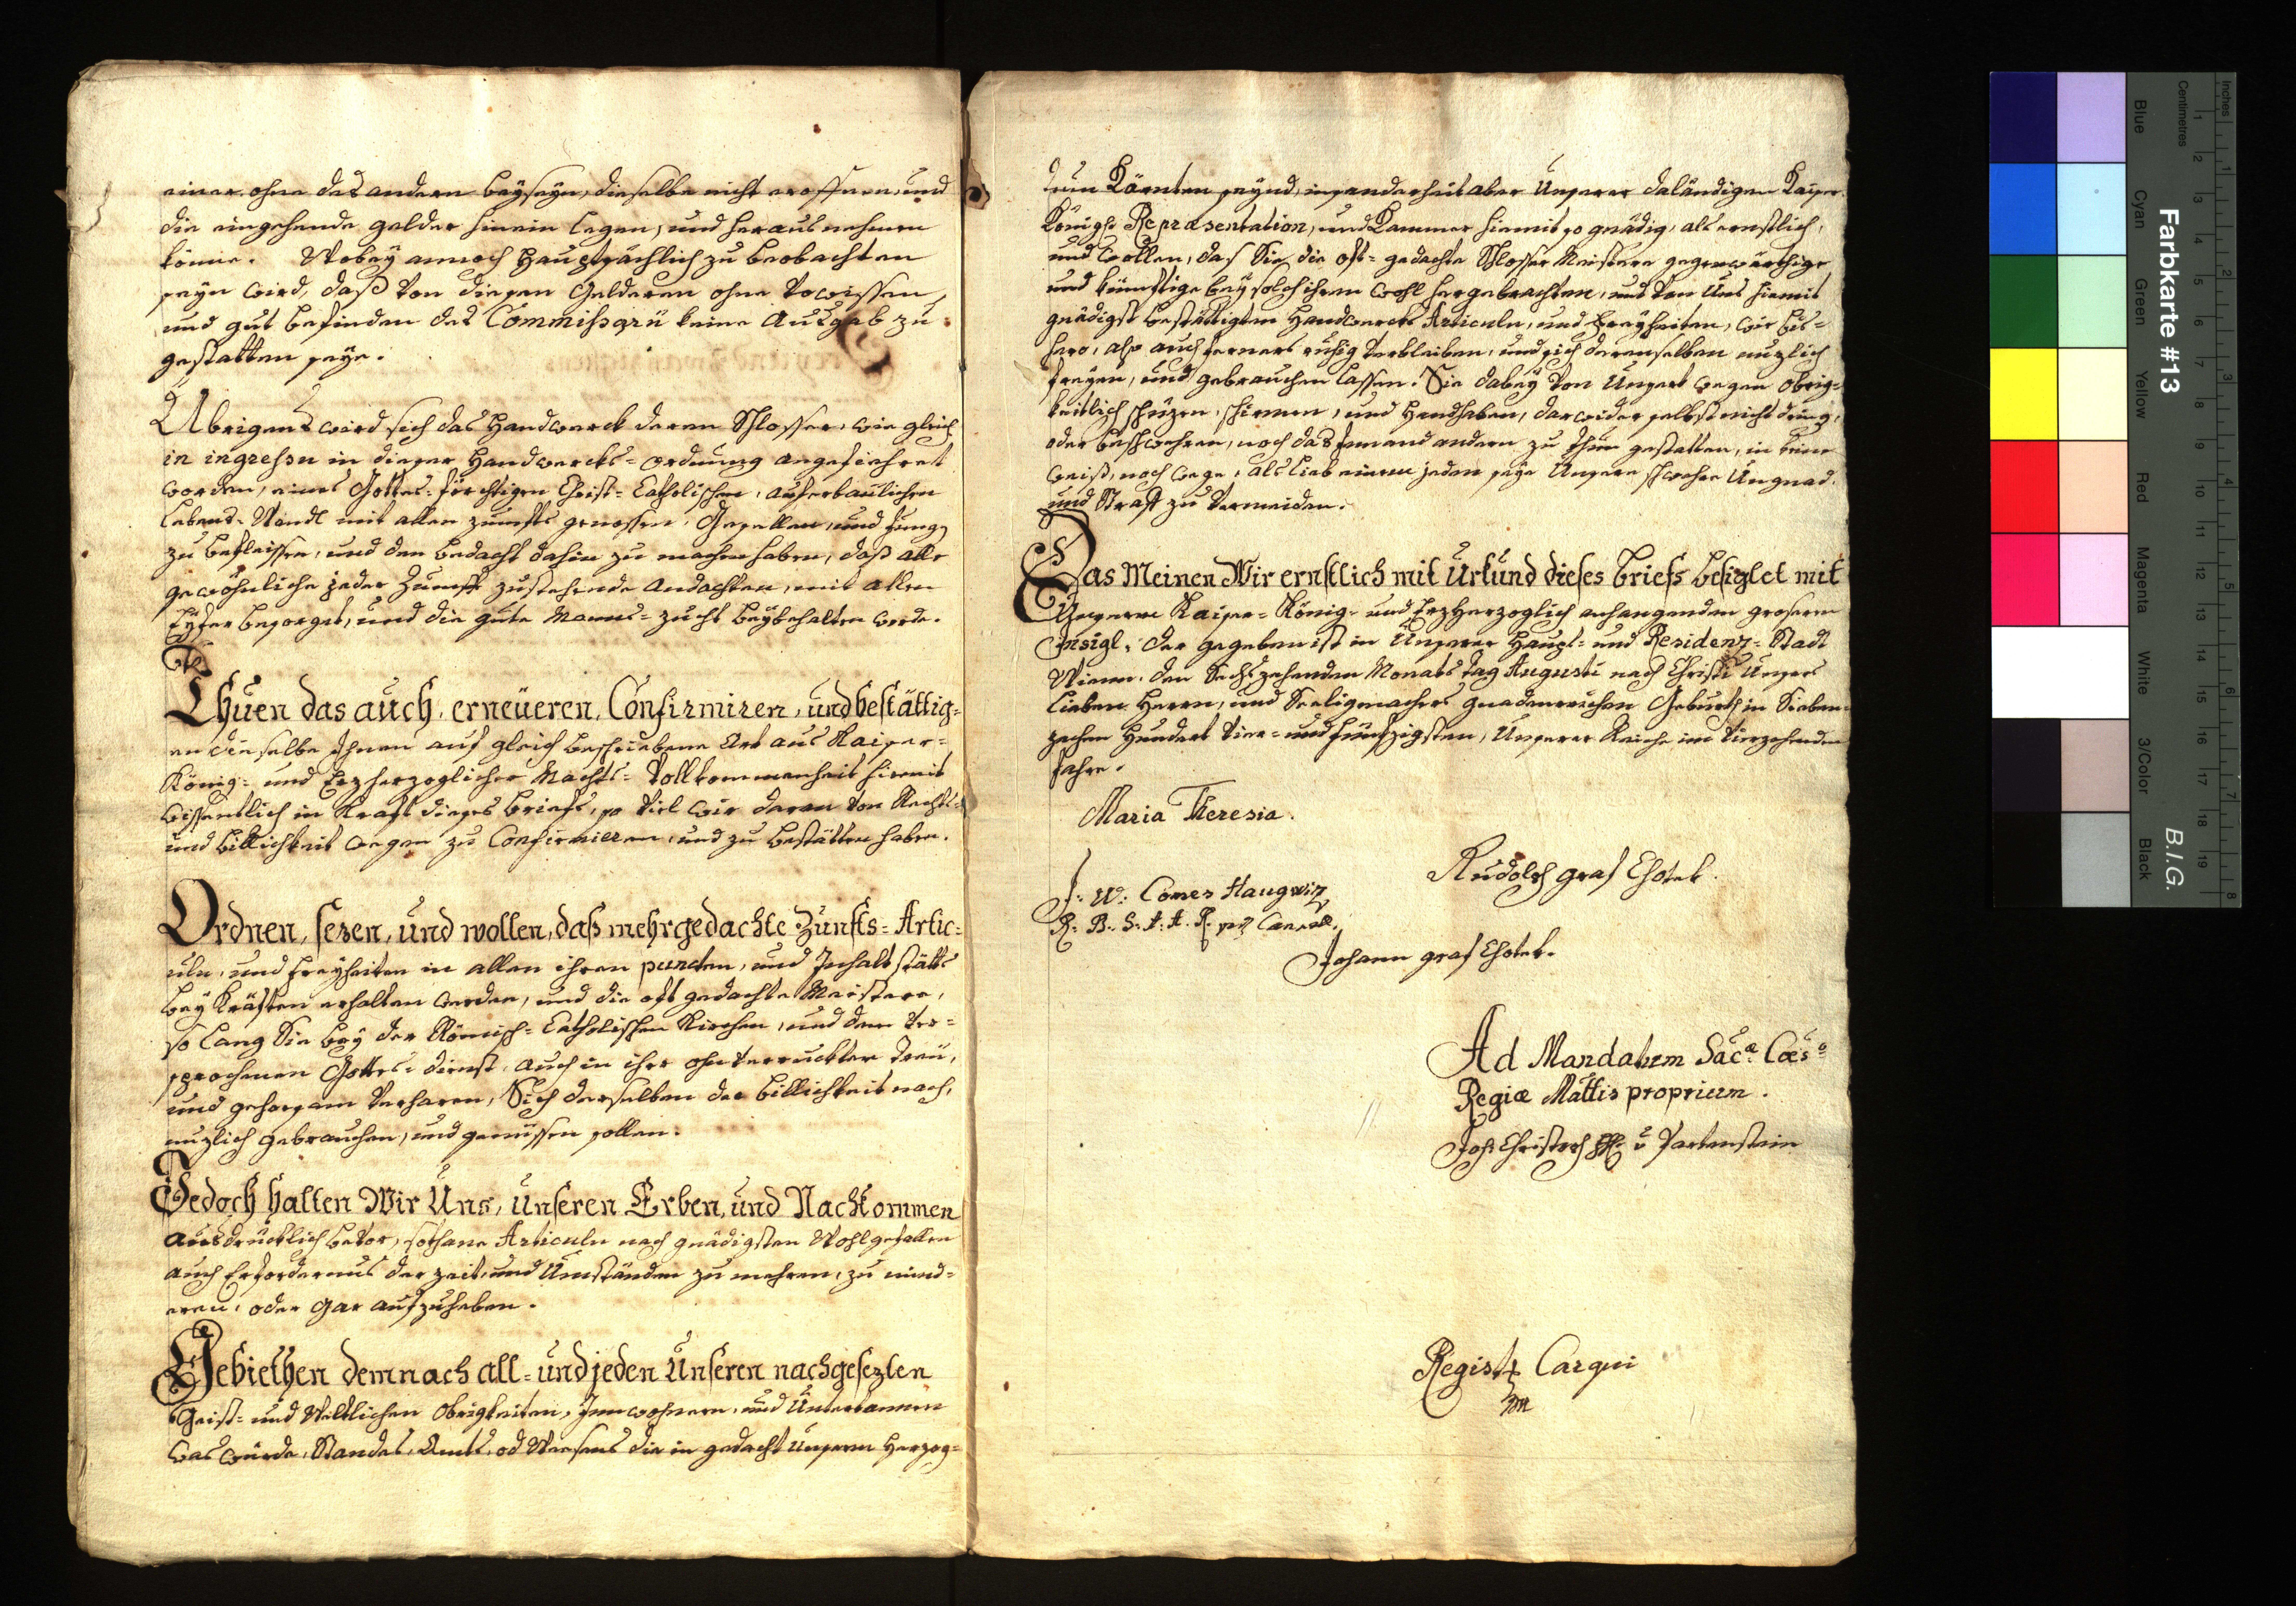 einer ohne des andern beyseyn, dieselbe nicht eroffnen, und
die eingehende gelder hinein legen, und heraus nehmen
könne. Wobey annoch Hauptsächlich zu beobachten
seyn wird, daß von diesen Gelderen ohne Vorwissen,
und gut befinden des Commissarii keine Ausgab zu
gestatten seye.
Ubrigens wird sich das Handwerck deren Schlosser, wie gleich
in ingressu in dieser Handwercks-ordnung angefiehret
worden, eines Gottes-förchtigen Christ-Catholischen, auferbaulichen
Lebens-Wandl mit allen zunfts genossen, Gesellen, und Jungen
zu befleissen, und den bedacht dahin zu machen haben, daß alle
gewöhnliche jeder Zunfft zustehende Andachten, mit allen
Eyfer besorget, und die gute Manns-zucht beybehalten werde.
Thuen das auch, erneüeren, Confirmiren, und bestättig-
en dieselbe Ihnen auf gleich beschriebene Art aus Kaiser-
König- und Erzherzoglicher Machts-Vollkommenheit hiemit
wissentlich in Krafft dieses briefs, so viel wir daran von Rechts-
und billichkeit wegen zu Confirmieren, und zu bestätten haben.
Ordnen, sezen, und wollen, daß mehrgedachte Zunfts-Artic-
uln, und Freyheiten in allen ihren puncten, und Inhalt stätts
bey Kräften erhalten werden, und die oft gedachte Meistere,
so lang Sie bey der Römisch-Catholischen Kirchen, und dem ver-
sprochenen Gottes-dienst, auch in ihr ohnverruckter Treü,
und gehorsam verharen, Sich derselben der billichkeit nach,
nuzlich gebrauchen, und genüssen sollen.
Jedoch halten Wir Uns, Unseren Erben, und Nachkommen
ausdrücklich bevor, sothane Articuln nach gnädigsten Wohlgefallen
auch Erfordernus der zeit, und Umständen zu mehren, zu mind-
eren, oder gar aufzuheben.
Gebiethen demnach all- und jeden Unseren nachgesezten
Geist- und Weltlichen Obrigkeiten, Innwohnern, und Unterthannen
was würde, Standes, Amts, od Weesens die in gedacht Unserm Herzog-
dum Kärnten seynd, insonderheit aber Unserer daländigen Kaiser.
Königl: Repræsentation, und Kammer hiemit so gnädig, als ernstlich,
und wollen, das Sie die oft-gedachte Schlosser Meistere gegenwärthige
und künftige bey solch ihren wohl hergebrachten, und von Uns hiemit
gnädigst bestättigten Handwercks Articuln, und Freyheiten, wie bis-
hero, also auch ferners ruhig verbleiben, und sich derenselben nuzlich
freyen, und gebrauchen lassen. Sie dabey von Unsert wegen obrig-
keitlich schüzen, schirmen, und Handhaben, darwider selbst nicht dring,
oder beschwehren, noch das jemand andern zu thun gestatten, in keine
weiß, noch wege, als lieb einem jeden seye Unsere schwehre Ungnad,
und Straff zu vermeiden.
Das Meinen Wir ernstlich mit Urkund dieses briefs besiglet mit
Unserm Kaiser-König- und Erzherzoglich anhangenden grosern
Insigl, der gegeben ist in Unserer Haupt- und Residenz-Stadt
Wienn, den Sechszehenden Monats tag Augusti nach Christi Unsers
lieben Herrn, und Seeligmachers gnadenreichen Geburth in Sieben-
zechen Hundert Vier- und fünfzigsten, Unserer Reiche im Vierzehenden
Jahre.
Maria Theresia.
Rudolph graf Chotek.
F: W: Comes Haugwiz
R. B. S. A. A. P. Cancell.
Johann graf Chotek.
Ad Mandatum Sacæ Cæso
Regiæ Mattis proprium.
Joh: Christoph v Bartenstein
Registr Carqui